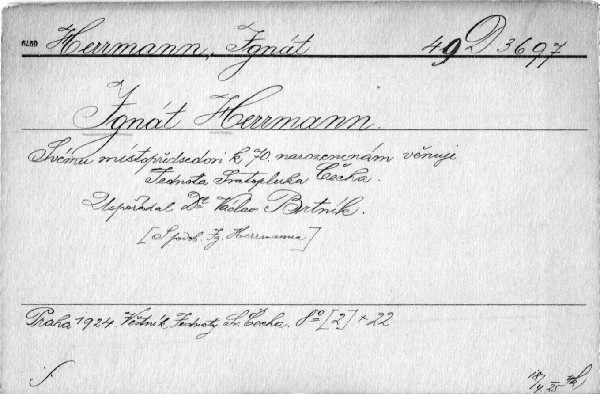 Herrmann, Ignát 49 D 3697
Ignát Herrmann.
Svému místopředsedovi k 70. narozeninám věnuje
Jednota Svatopluka Čecha.
Uspořádal Dr Václav Brtník.
[S podob. Ig. Herrmanna]
Praha 1924. Věstník Jednoty Sv. Čecha. 8° [2] + 22
18/4 25